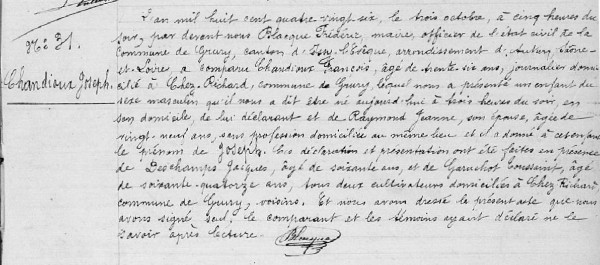 N° 31.
Chandioux Joseph.
L'an mil huit cent quatre-vingt-six, le trois octobre, à cinq heures du
soir, par devant nous Blacque Frédéric, maire, officier de l'état civil de la
Commune de Grury, canton d'Issy-l'Evêque, arrondissement d'Autun, Saône-
et-Loire, a comparu Chandioux François, âgé de trente-six ans, journalier domi-
cilié à Chez-Richard, commune de Grury, lequel nous a présenté un enfant du
sexe masculin qu'il nous a dit être né aujourd'hui à trois heures du soir, en
son domicile, de lui déclarant et de Raymond Jeanne, son épouse, âgée de
vingt-neuf ans, sans profession domiciliée au même lieu et il a donné à cet enfant
le prénom de Joseph. Ces déclaration et présentation ont été faites en présence
de Deschamps Jacques, âgé de soixante ans, et de Toussaint, âgé
de soixante-quatorze ans, tous deux cultivateurs domiciliés à Chez Richard
commune de Grury, voisins. Et nous avons dressé le présent acte que nous
avons signé seul, le comparant et les témoins ayant déclaré ne le
savoir après lecture.